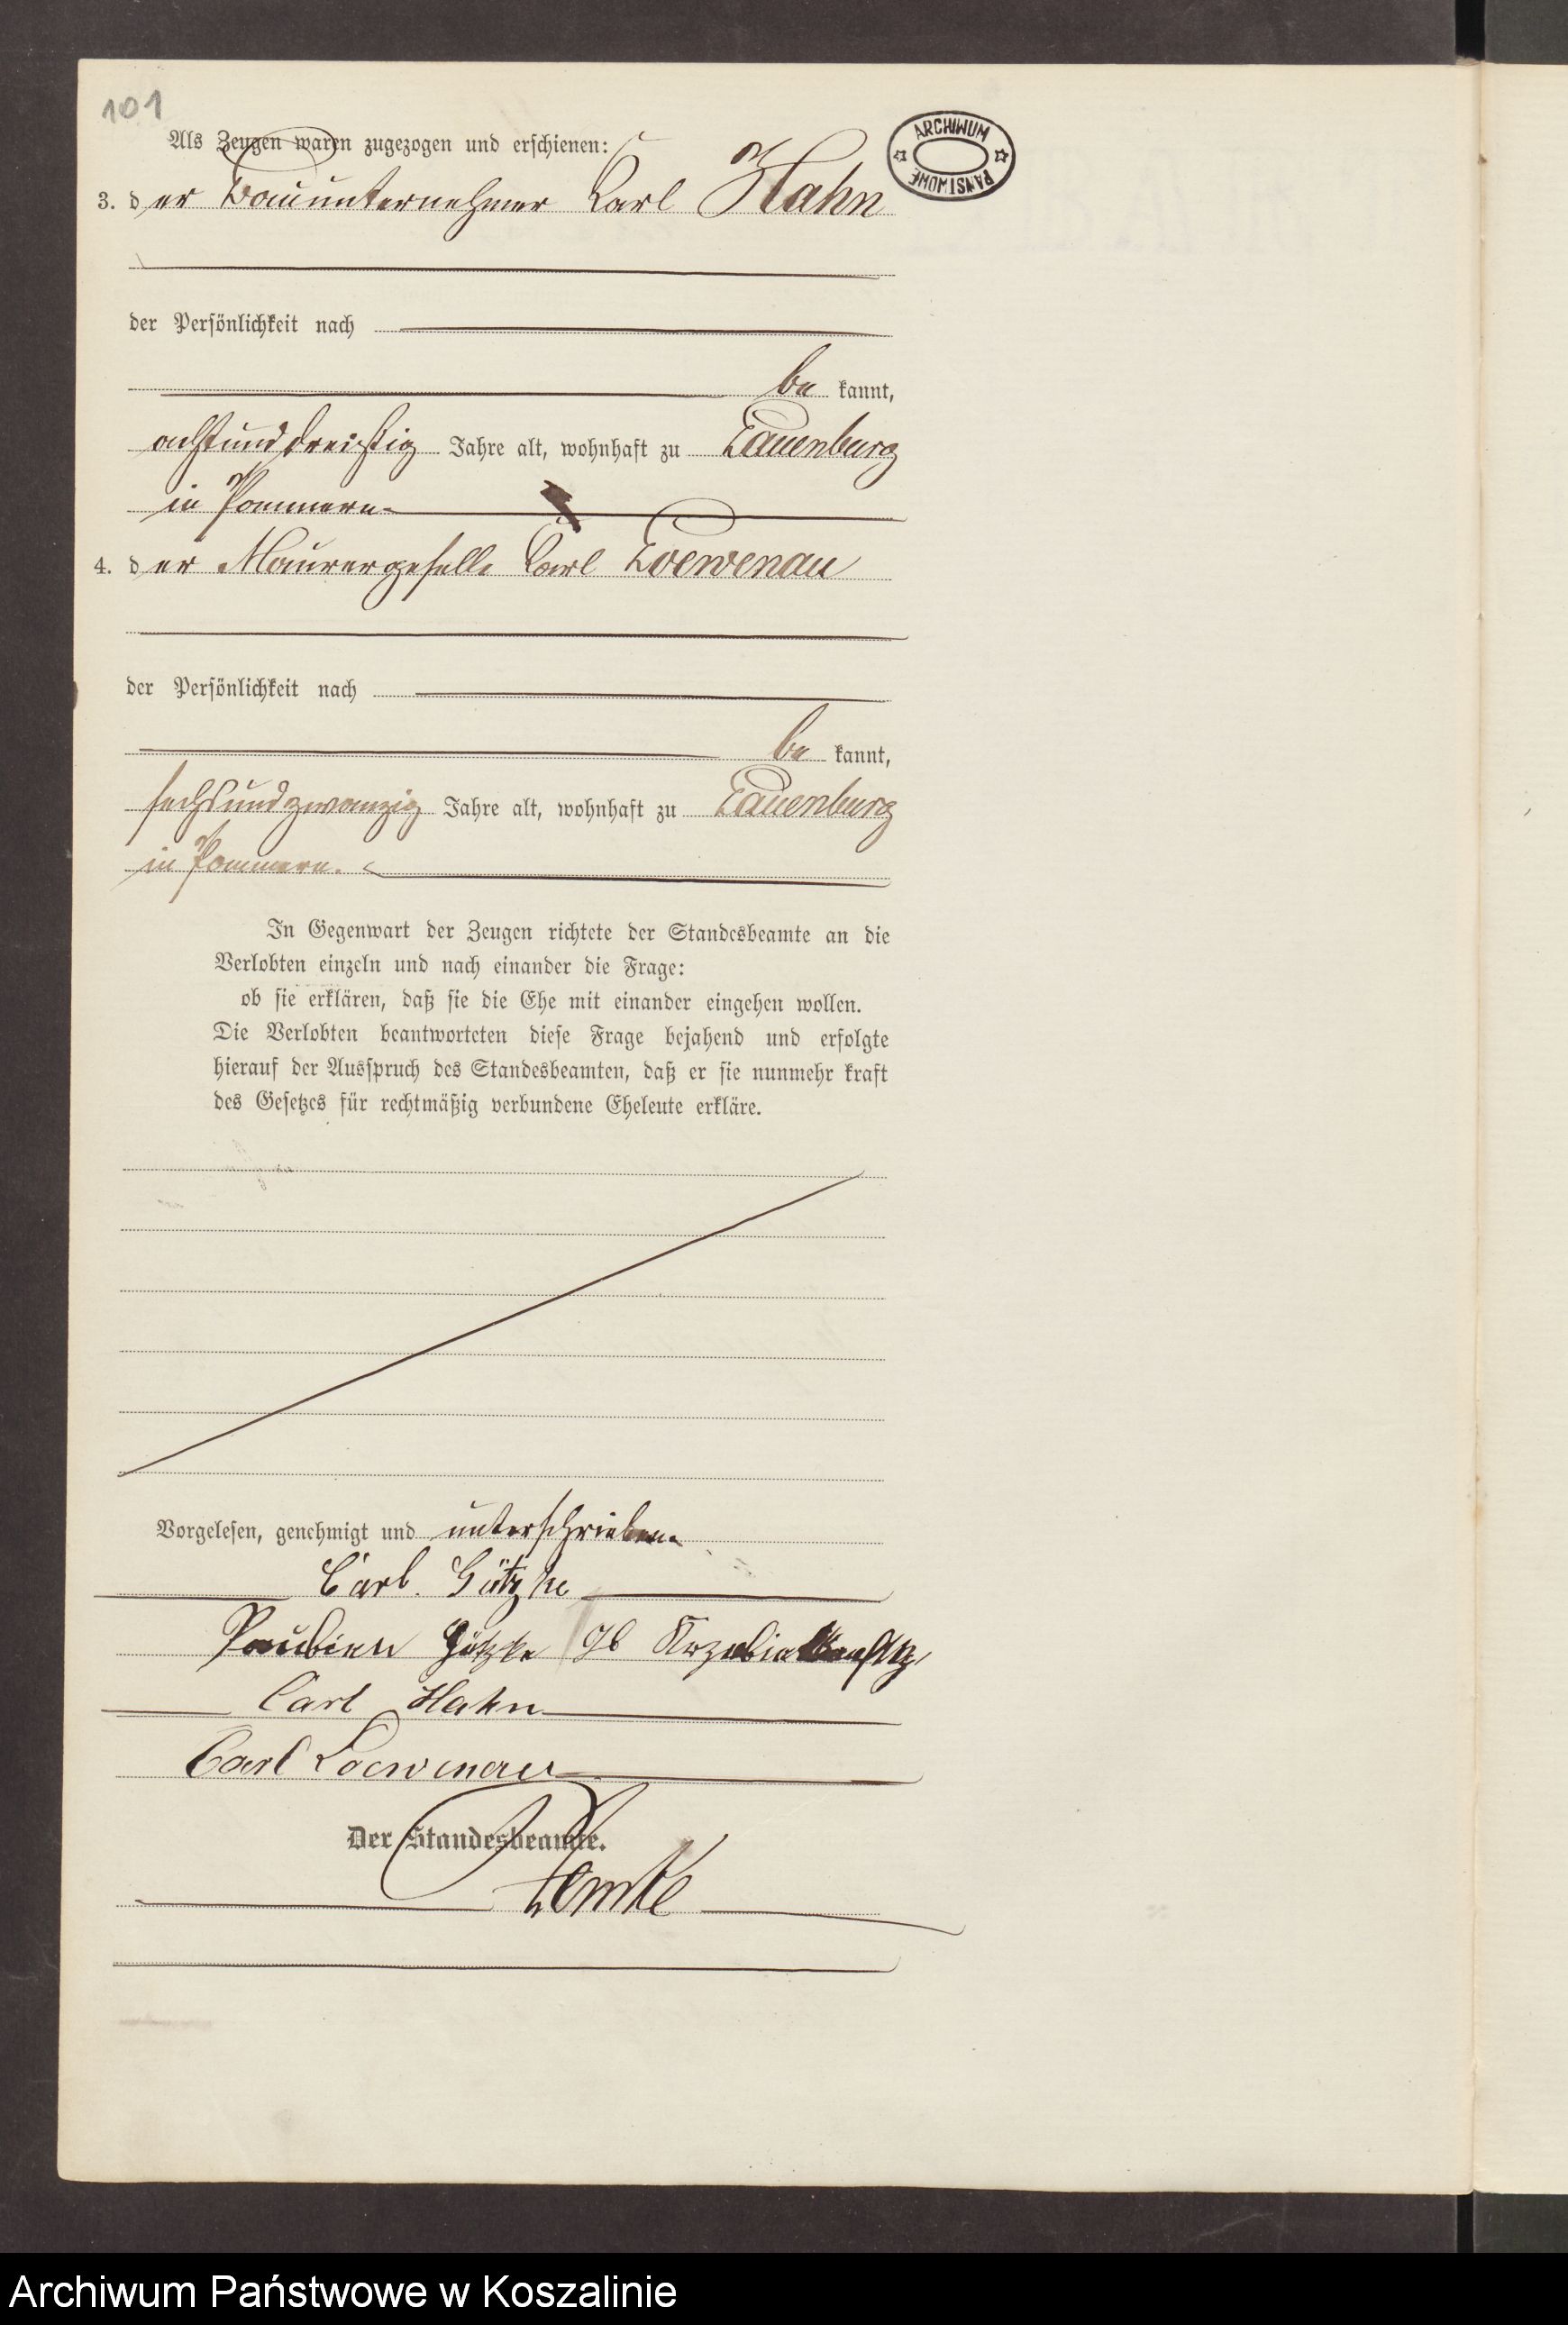 101
Als Zeugen waren zugezogen und erschienen:
ARCHIWUM PAŃSTWOWE
3. der Bauunternehmer Carl Hahn
der Persönlichkeit nach
be kannt,
achtunddreißig Jahre alt, wohnhaft zu Lauenburg
in Pommern.
4. der Maurergeselle Carl Loewenau
der Persönlichkeit nach
be kannt,
sechsundzwanzig Jahre alt, wohnhaft zu Lauenburg
in Pommern.
In Gegenwart der Zeugen richtete der Standesbeamte an die
Verlobten einzeln und nach einander die Frage:
ob sie erklären, daß sie die Ehe mit einander eingehen wollen.
Die Verlobten beantworteten diese Frage bejahend und erfolgte
hierauf der Ausspruch des Standesbeamten, daß er sie nunmehr kraft
des Gesetzes für rechtmäßig verbundene Eheleute erkläre.
Vorgelesen, genehmigt und unterschrieben.
Carl Götzke
Götzke
Carl Hahn
Carl Loewenau
Der Standesbeamte.
Lemke
Archiwum Państwowe w Koszalinie